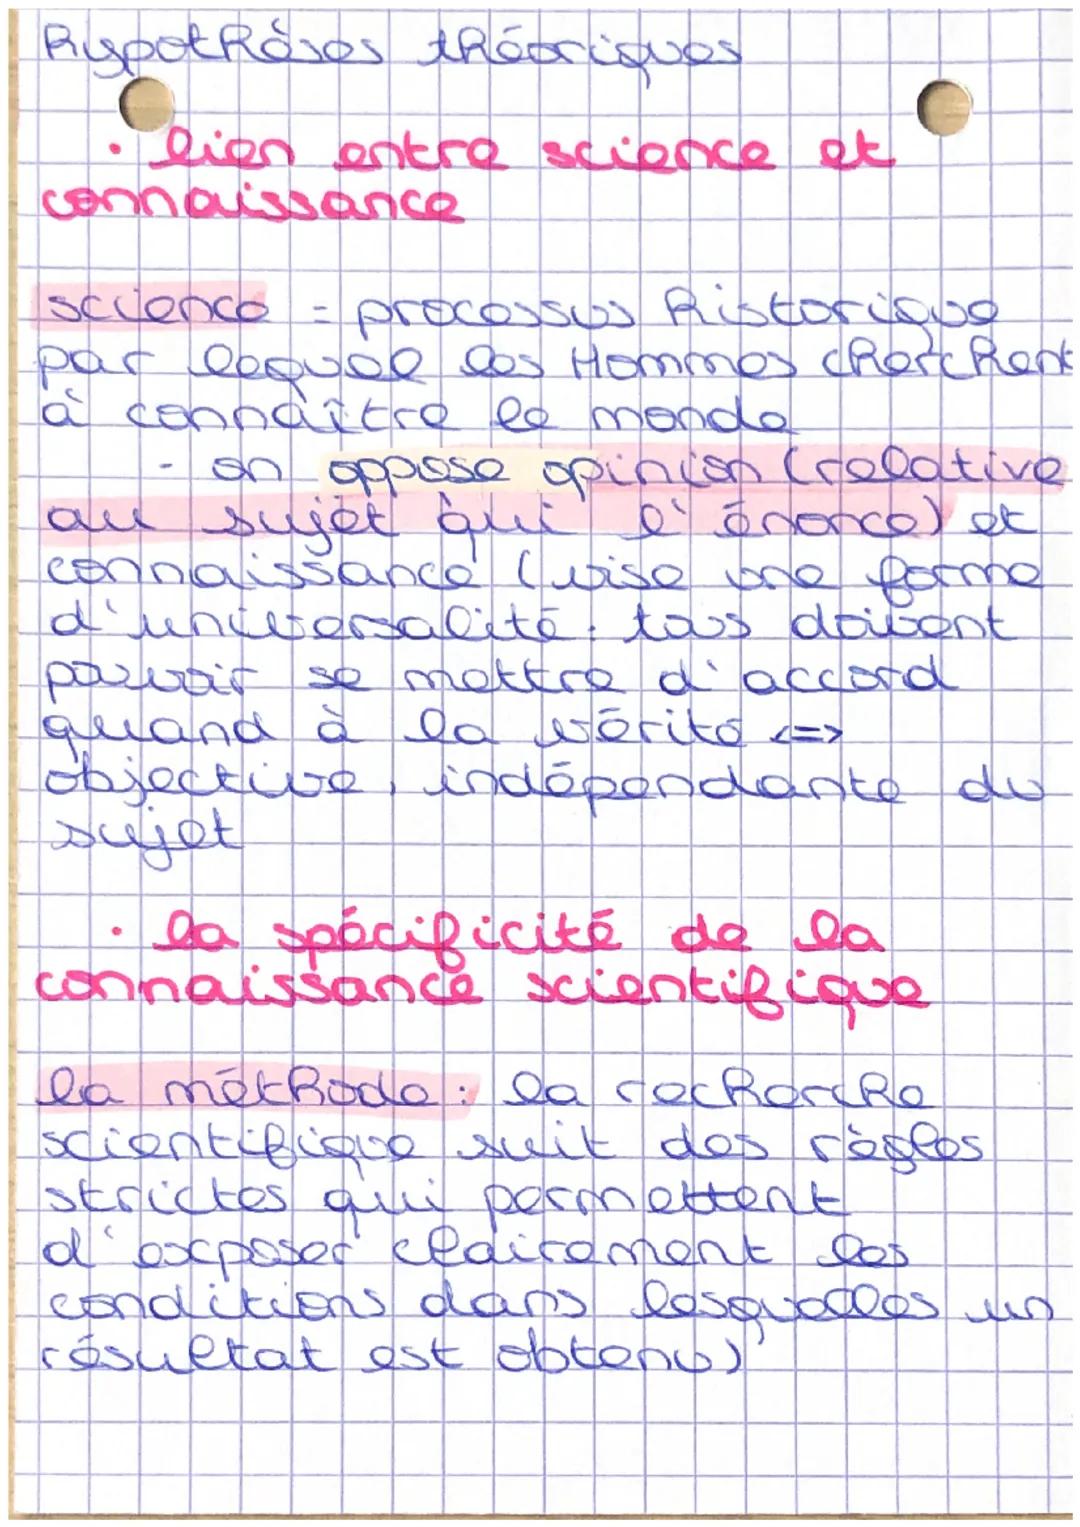 hypothèses théoriques
• lien entre science et
connaissance
science = processus historique
par lequel les Hommes cherchent
à connaître le monde
- on oppose opinion (relative
au sujet qui l'énonce) et
connaissance (vise une forme
d'universalité : tous doivent
pouvoir se mettre d'accord
quand à la vérité <=>
objective, indépendante du
sujet
• la spécificité de la
connaissance scientifique
la méthode : la recherche
scientifique suit des règles
strictes qui permettent
d'exposer clairement les
conditions dans lesquelles un
résultat est obtenu)